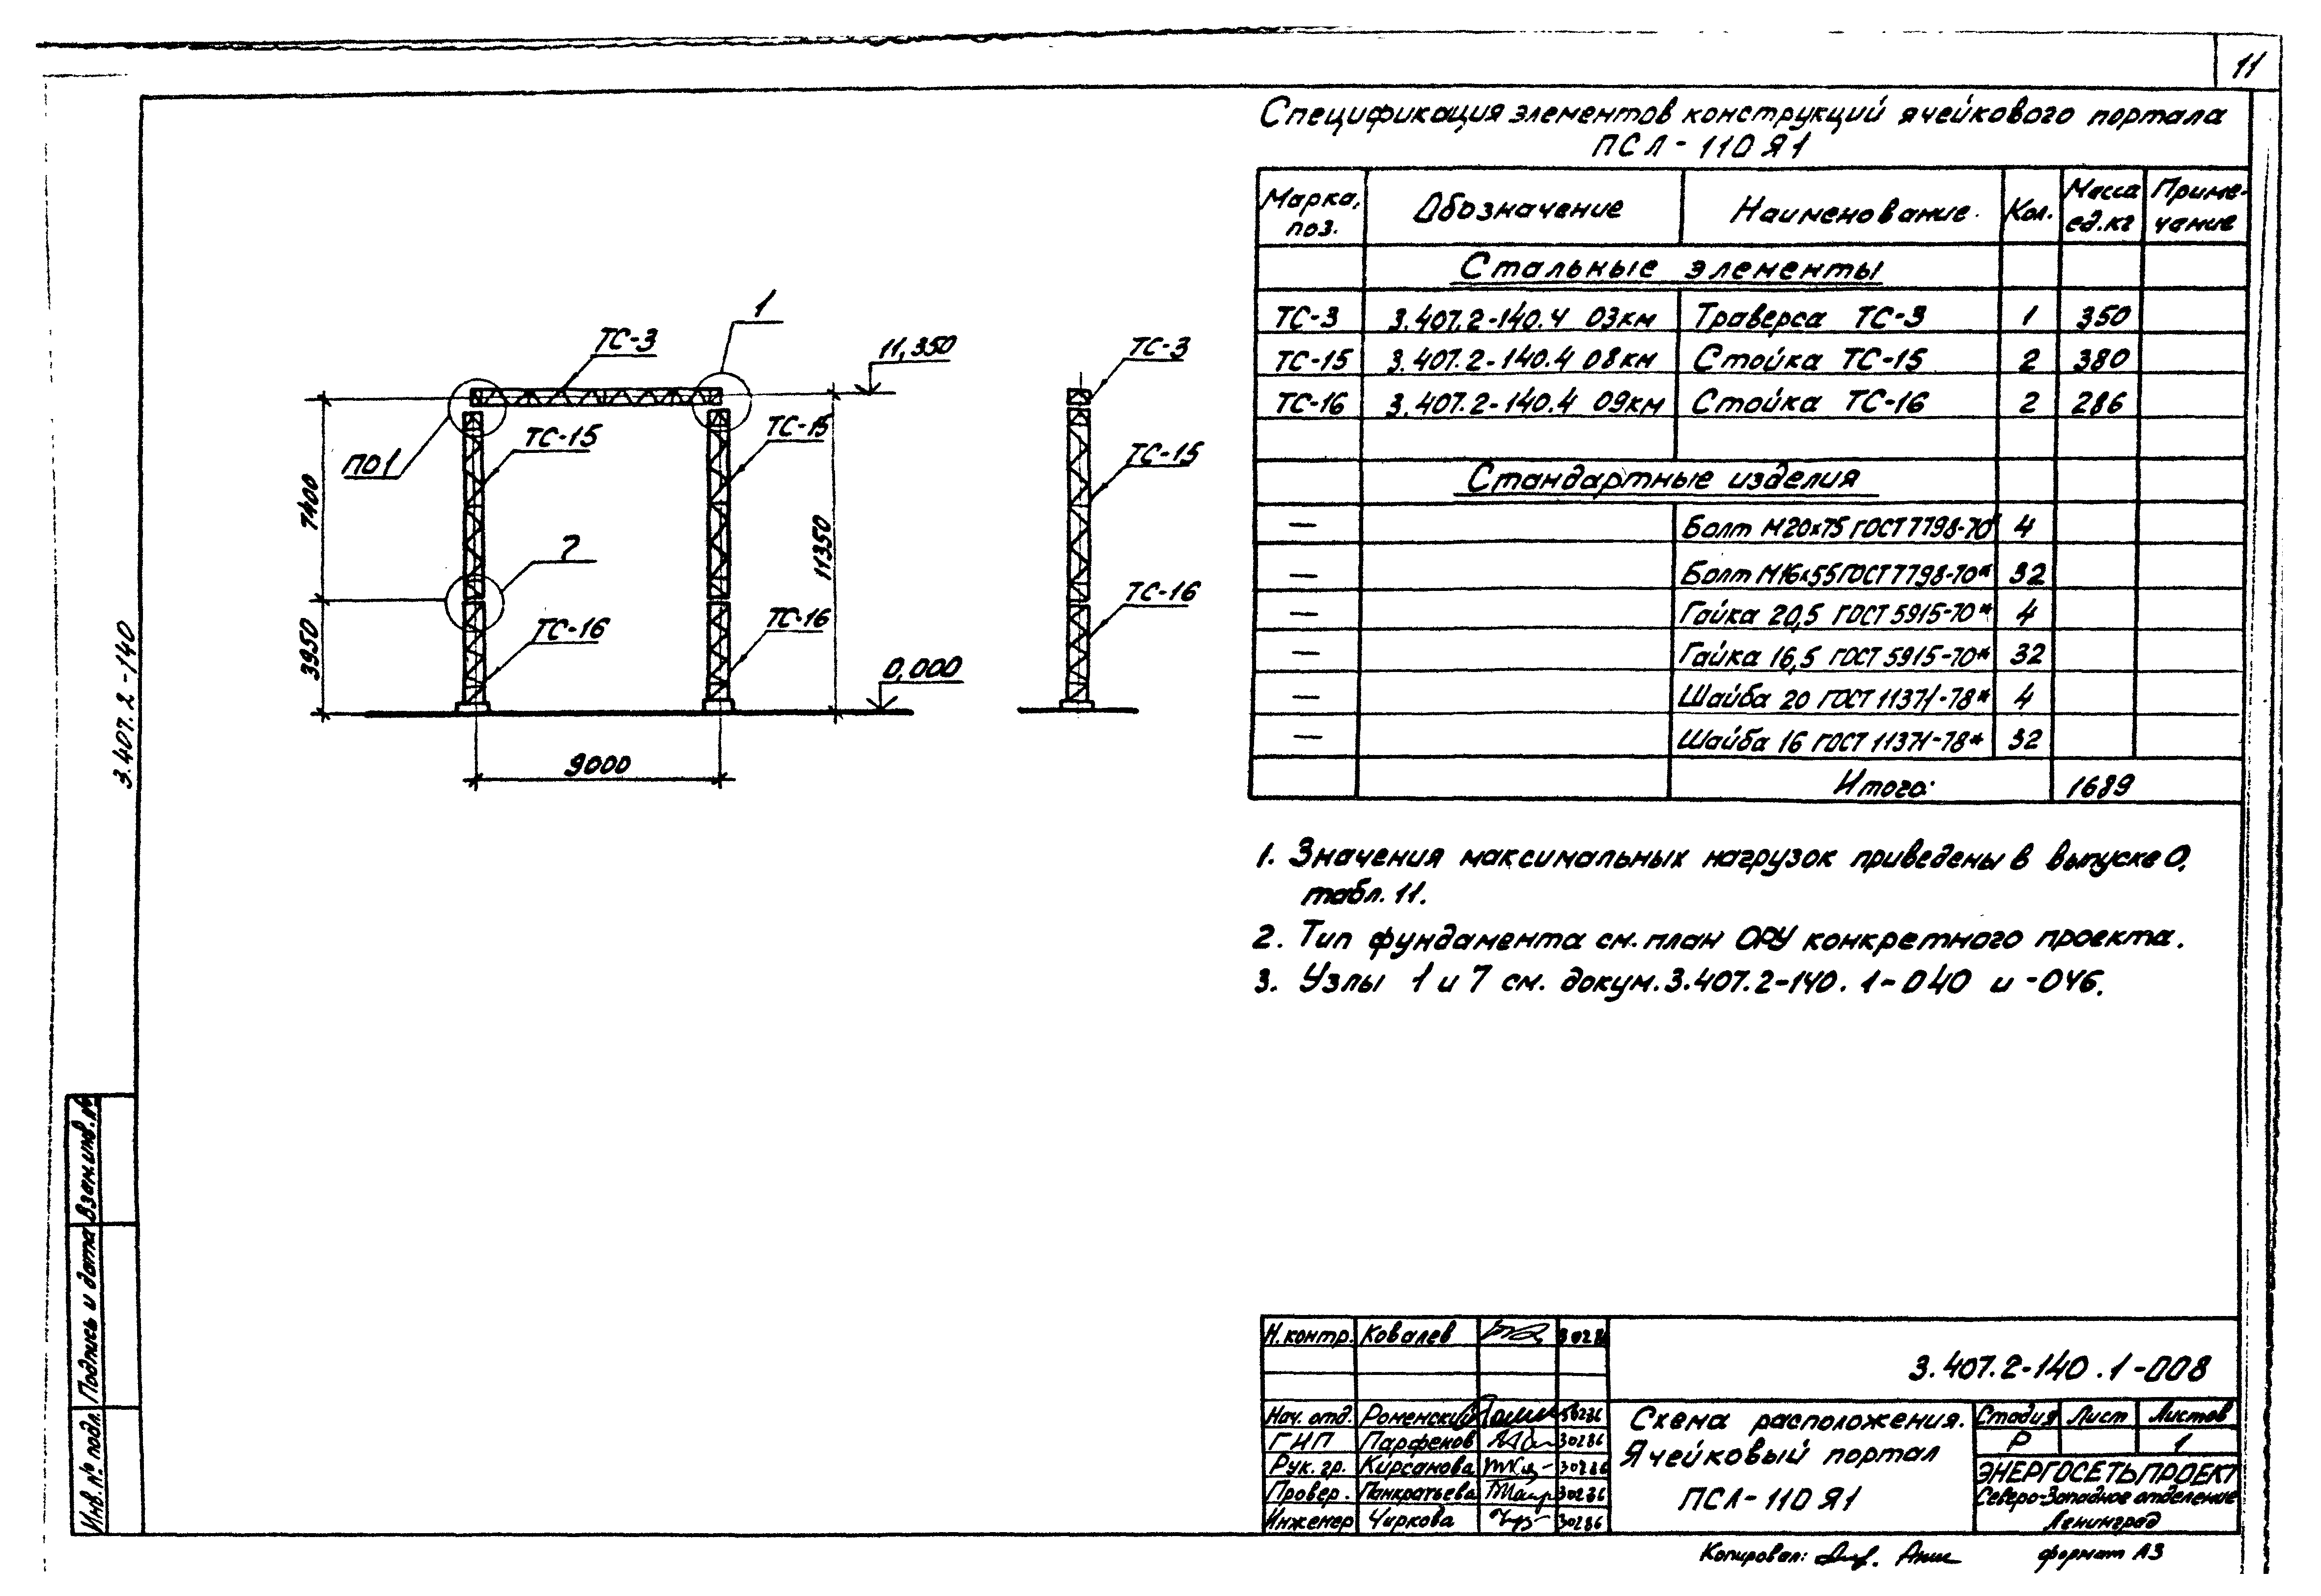 11
Спецификация элементов конструкций ячейкового портала
ПСЛ-110Я1
Марка, поз. Обозначение Наименование Кол. Масса ед.кг Примечание
Стальные элементы
ТС-3 3.407.2-140.4 03км Траверса ТС-3 1 350
ТС-15 3.407.2-140.4 08км Стойка ТС-15 2 380
ТС-16 3.407.2-140.4 09км Стойка ТС-16 2 286
Стандартные изделия
— Болт М20х75 ГОСТ 7798-70* 4
— Болт М16х55 ГОСТ 7798-70* 32
— Гайка 20,5 ГОСТ 5915-70* 4
— Гайка 16,5 ГОСТ 5915-70* 32
— Шайба 20 ГОСТ 11371-78* 4
— Шайба 16 ГОСТ 11371-78* 32
Итого: 1689
1. Значения максимальных нагрузок приведены в выпуске 0,
табл. 11.
2. Тип фундамента см. план ОРУ конкретного проекта.
3. Узлы 1 и 7 см. докум. 3.407.2-140.1-040 и -046.
1
ТС-3
11,350
ТС-3
ТС-15
ТС-15
ТС-15
ПО1
7400
2
11350
ТС-16
ТС-16
ТС-16
3950
0,000
9000
3.407.2-140
Взам.инв.№
Подпись и дата
Инв.№ подл.
Н.контр. Ковалев
3.407.2-140.1-008
Нач. отд. Роменский
ГИП Парфенов 30286
Рук. гр. Кирсанова 30286
Провер. Панкратьева 30286
Инженер Чиркова 30286
Схема расположения.
Ячейковый портал
ПСЛ-110Я1
Стадия Лист Листов
Р 1
ЭНЕРГОСЕТЬПРОЕКТ
Северо-Западное отделение
Ленинград
Копировал:
формат А3